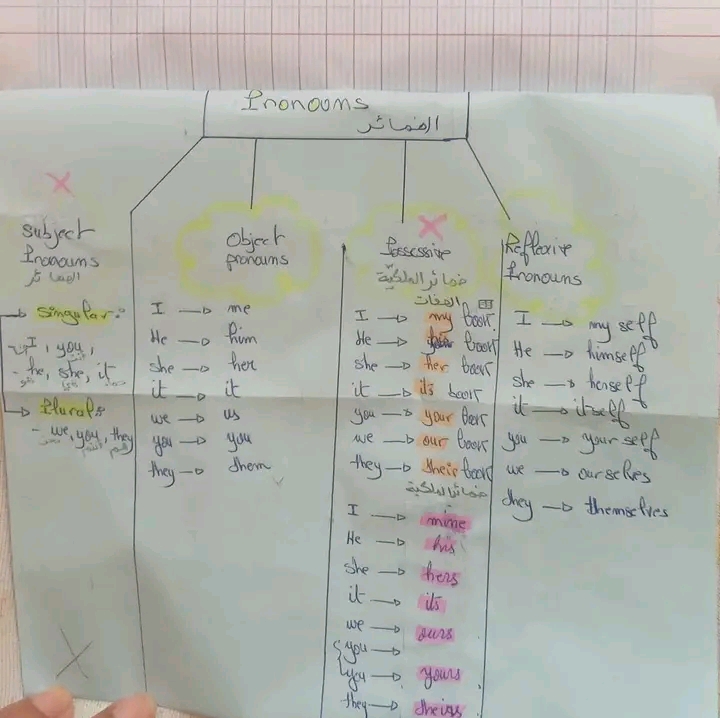 Pronouns
الضمائر
Subject
Pronouns
الضمائر
Singular:
I, you,
- he, she, it
Plural:
- we, you, they
Object
pronouns
I → me
He → him
she → her
it → it
we → us
you → you
they → them
Possessive
ضمائر الملكية
الصفات
I → my book
He → book
she → her book
it → its book
you → your book
we → our book
they → their book
ضمائر الملكية
I → mine
He → his
she → hers
it → its
we → ours
you →
you → yours
they → theirs
Reflexive
Pronouns
I → my self
He → himself
she → herself
it → itself
you → your self
we → ourselves
they → themselves